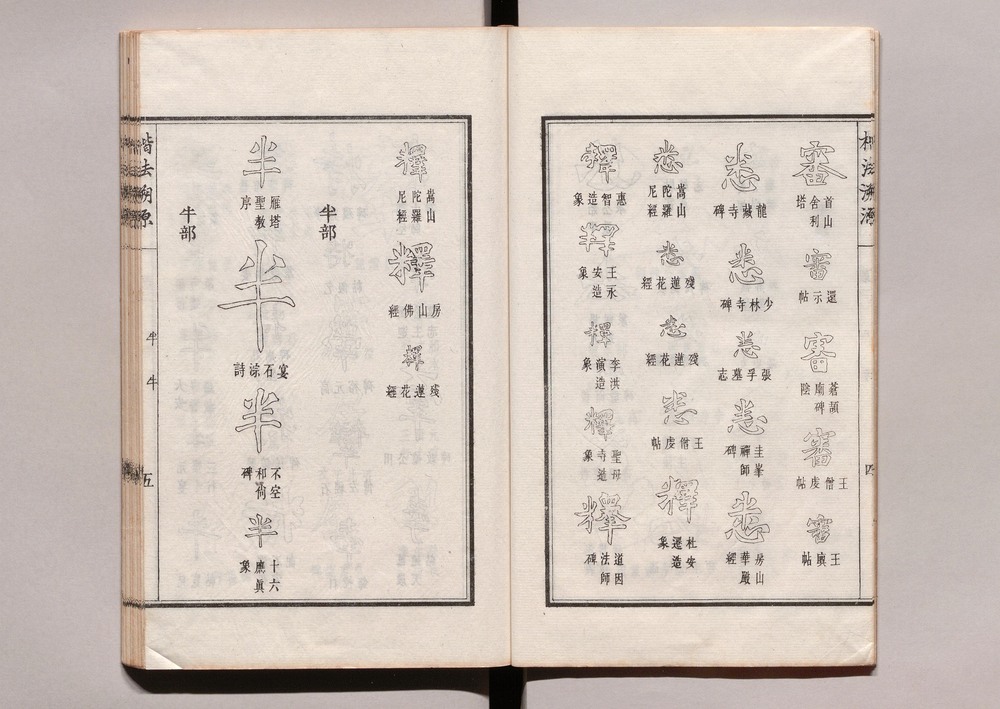 審 首山舍利塔 審 還示帖 審 蒼頡廟碑陰 審 王僧虔帖 審 王廙帖
悉 龍藏寺碑 悉 少林寺碑 悉 張孚墓志 悉 圭峯禪師碑 悉 房山華嚴經
悉 嵩山陀羅尼經 悉 殘蓮花經 悉 殘蓮花經 悉 王僧虔帖 釋 杜安遷造象
釋 惠智造象 釋 王永安造象 釋 李洪演造象 釋 聖母寺造象 釋 道因法師碑
釋 嵩山陀羅尼經 釋 房山佛經 釋 殘蓮花經
半部
半 雁塔聖教序 半 宴石淙詩 半 不空和尚碑 半 十六應眞象
牛部
楷法溯源 半 牛 五